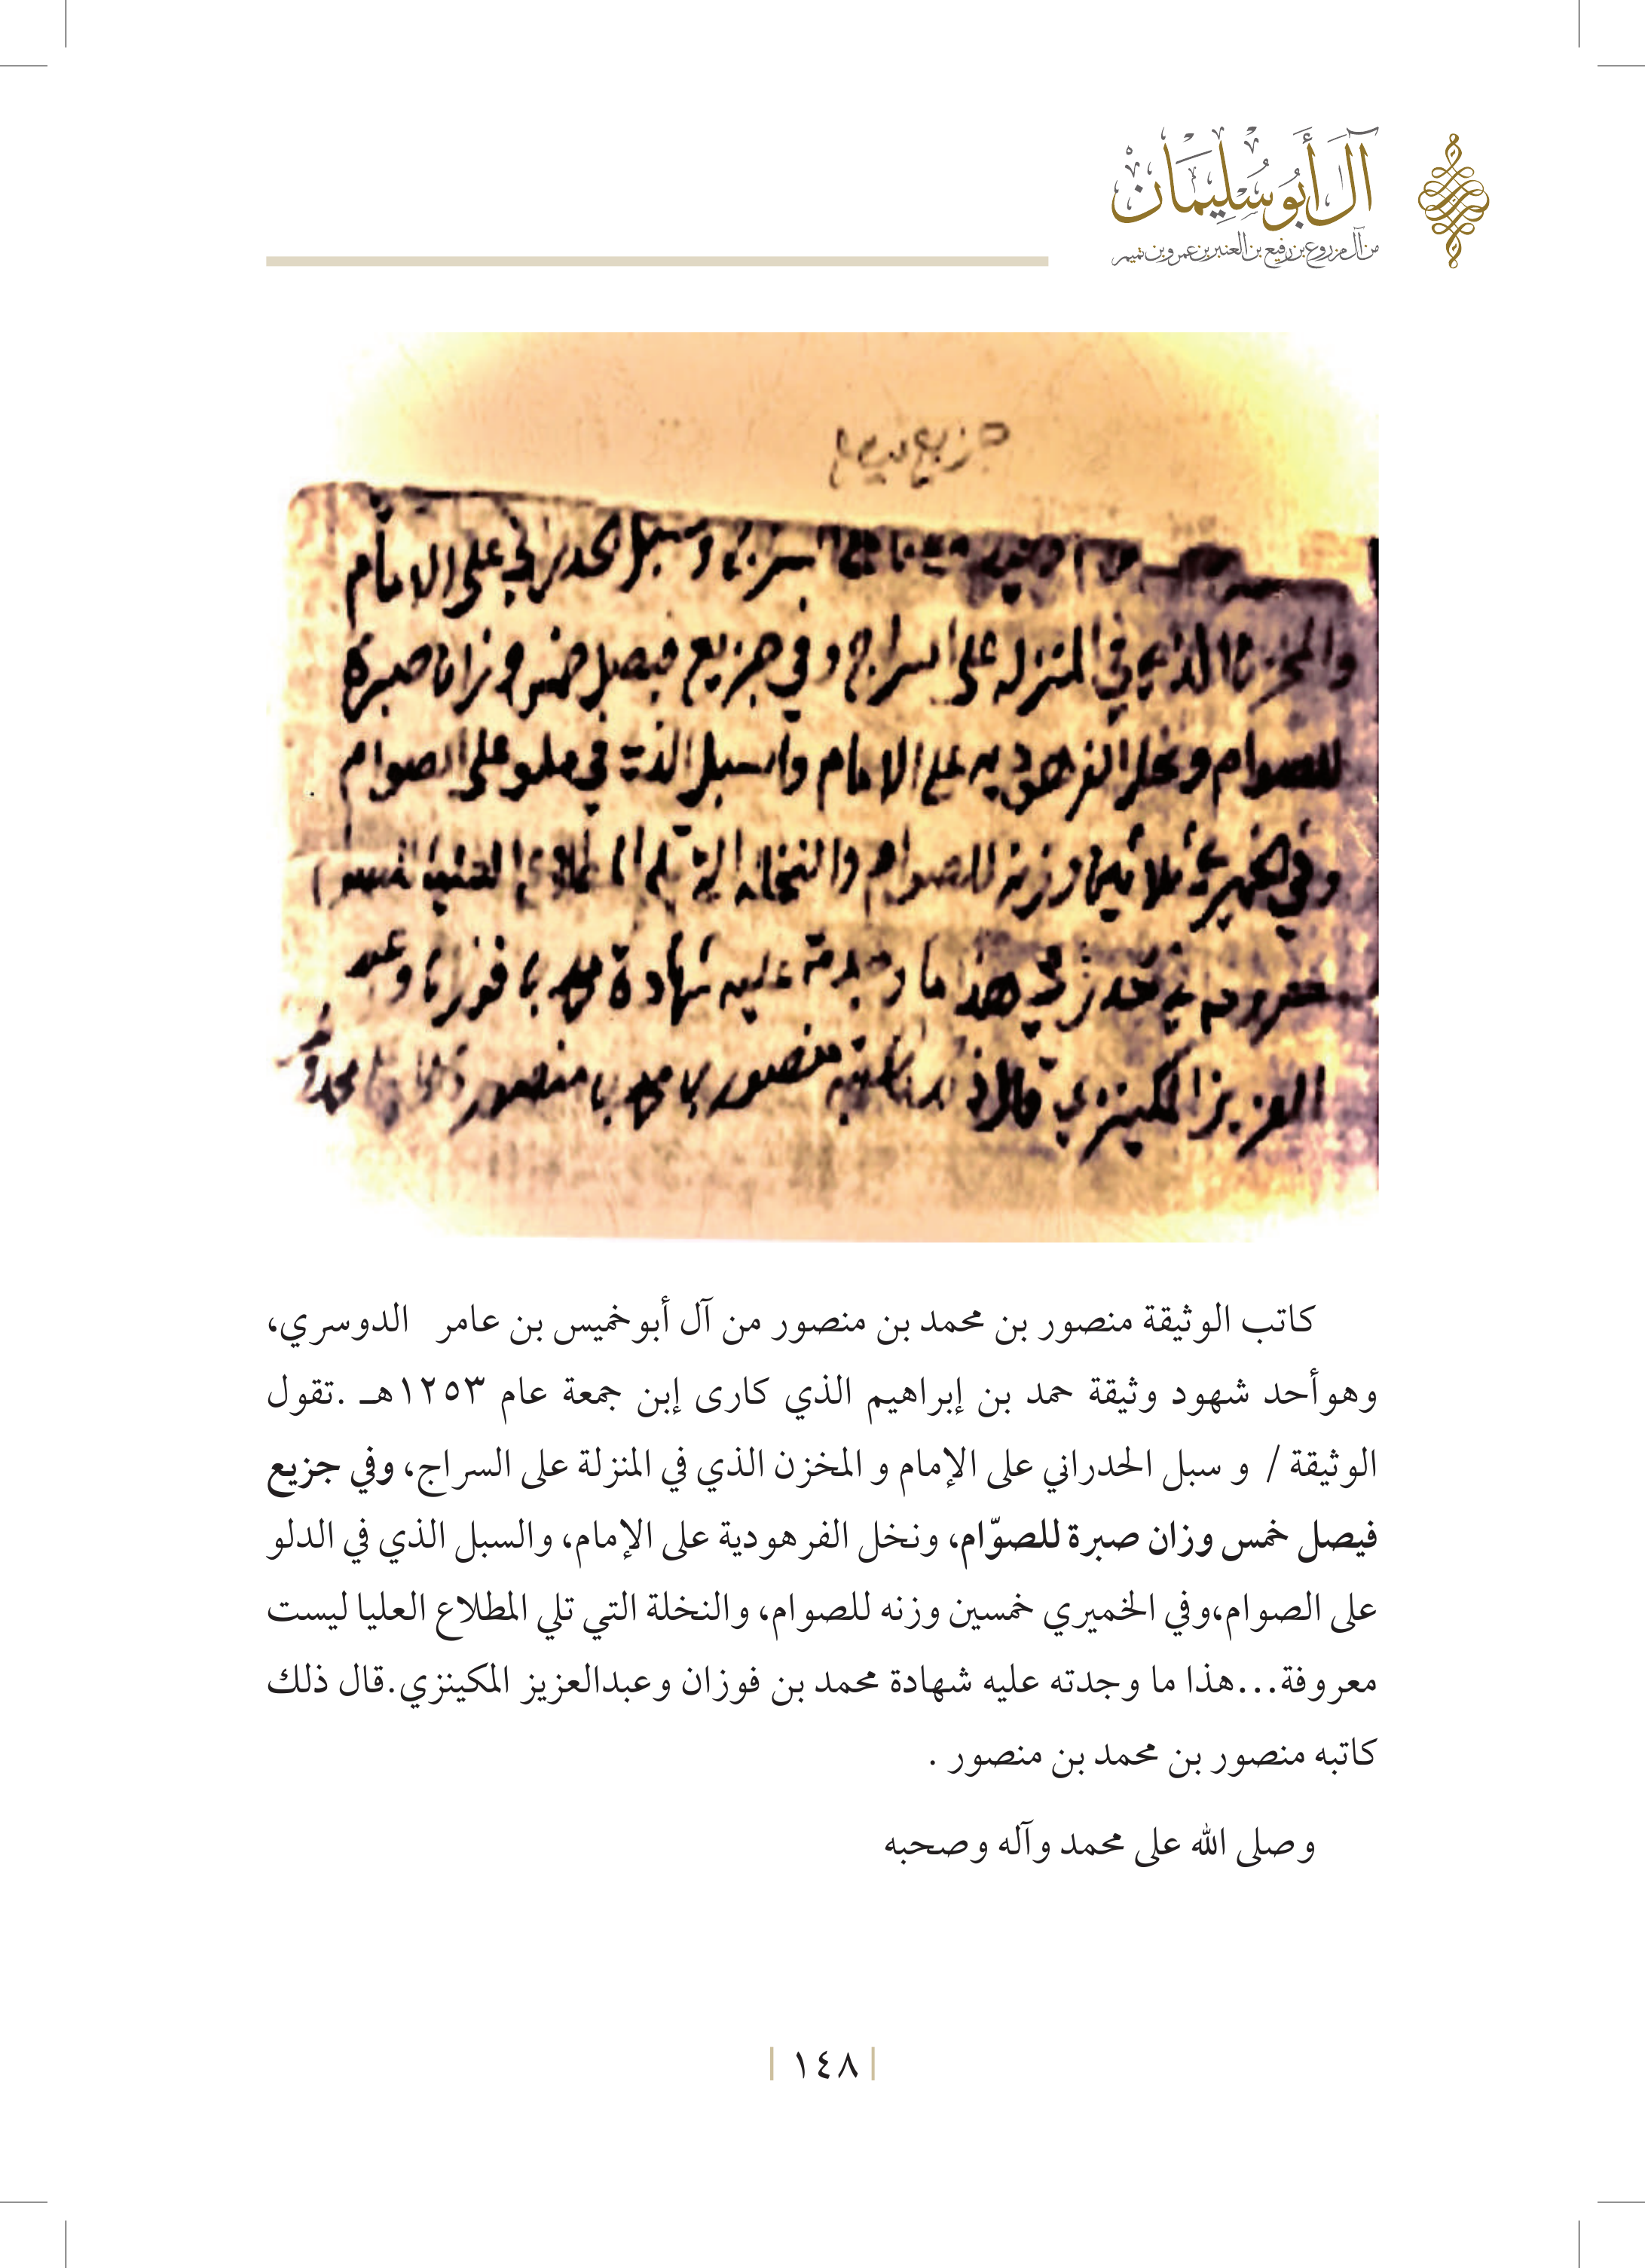 آل أبو سليمان
من آل مزروع بن رفيع بن العنبر بن عمرو بن تميم
جزيع فيصل
وسبل الحدراني على الامام
والمخزن الذي في المنزله على السراج وفي جزيع فيصل خمس وزان صبرة
للصوام ونخل الفرهوديه على الامام والسبل الذي في على الصوام
وفي وزنة للصوام والنخله التي تلي
هذا ما وجدته عليه شهادة محمد بن فوزان وعبد
العزيز المكينزي قال ذلك كاتبه منصور بن محمد بن منصور
كاتب الوثيقة منصور بن محمد بن منصور من آل أبوخميس بن عامر الدوسري،
وهوأحد شهود وثيقة حمد بن إبراهيم الذي كارى إبن جمعة عام ١٢٥٣هـ .تقول
الوثيقة / و سبل الحدراني على الإمام و المخزن الذي في المنزلة على السراج، وفي جزيع
فيصل خمس وزان صبرة للصوّام، ونخل الفرهودية على الإمام، والسبل الذي في الدلو
على الصوام،وفي الخميري خمسين وزنه للصوام، والنخلة التي تلي المطلاع العليا ليست
معروفة...هذا ما وجدته عليه شهادة محمد بن فوزان وعبدالعزيز المكينزي.قال ذلك
كاتبه منصور بن محمد بن منصور .
وصلى الله على محمد وآله وصحبه
١٤٨